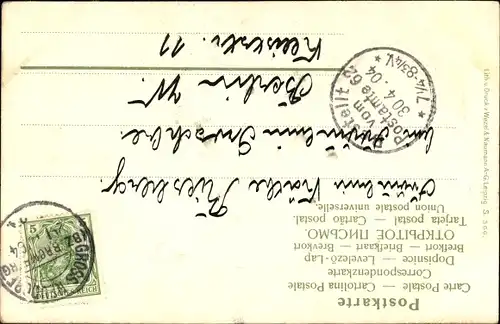 Postkarte
Carte Postale — Cartolina Postale
Correspondenzkarte
Dopisnice — Levelező-Lap
Brefkort — Briefkaart — Brevkort
ОТКРЫТОЕ ПИСЬМО.
Tarjeta postal. — Cartão postal.
Union postale universelle.
Fräulein Käthe
Fräulein
Berlin W.
Kleiststr. 11
Bestellt
vom
Postamte 62
30.4.04
7¼-8¾N.
5
REICH
Lith. u. Druck v. Wezel & Naumann A-G. Leipzig. S.